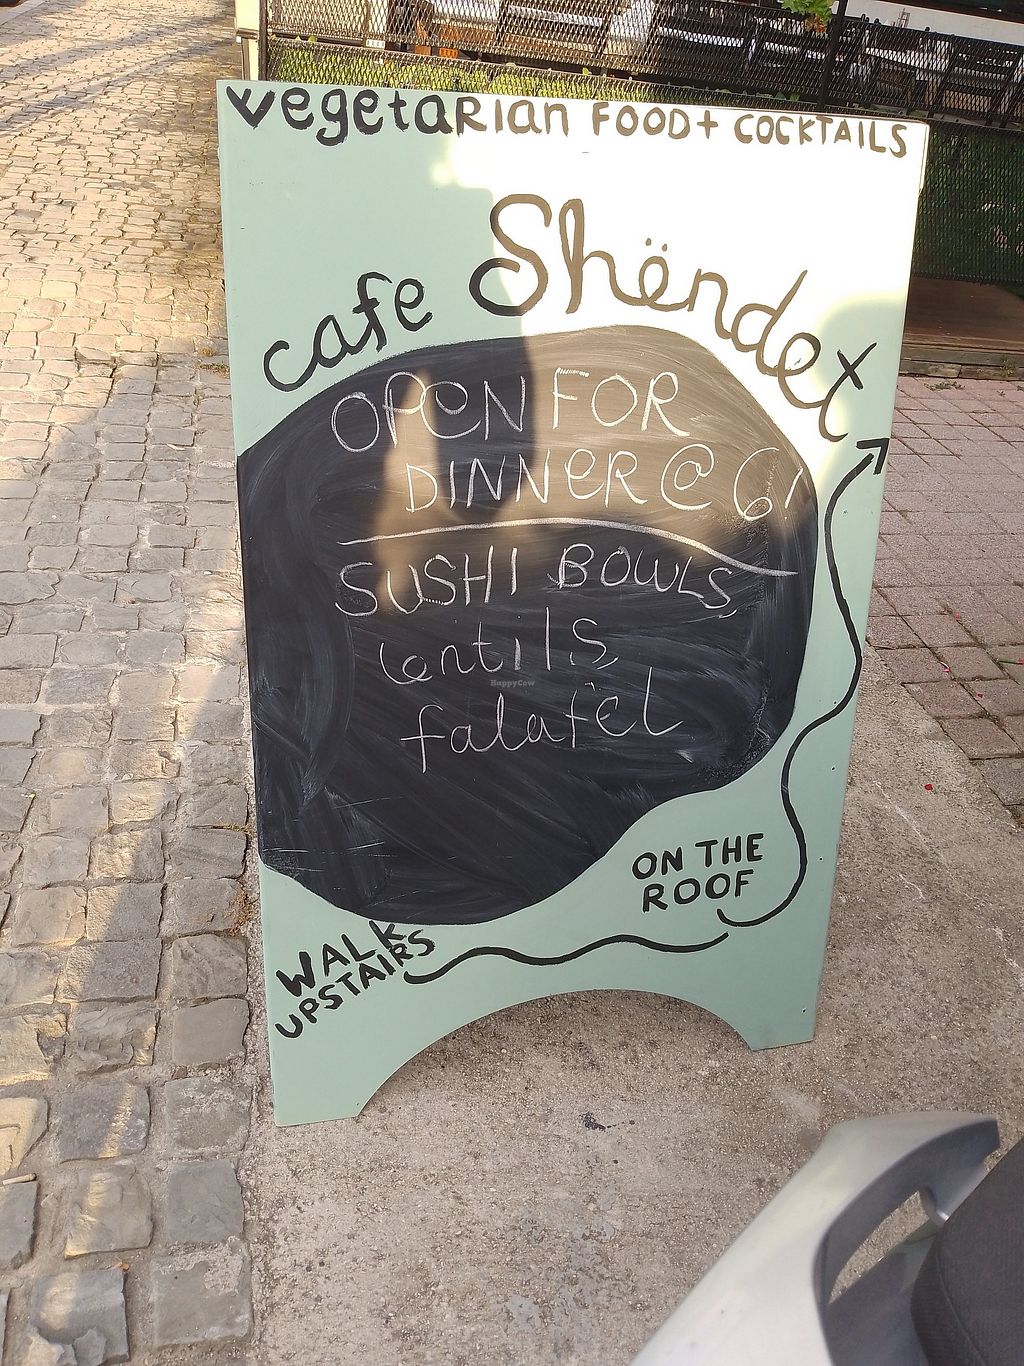 vegetaRian FOOD + COCKTAILS
cafe Shëndet
OPeN FOR
DINNeR @ 6!
SUSHI BOWLS
lentils,
falafel
HappyCow
ON THE
ROOF
WALK
UPSTAIRS